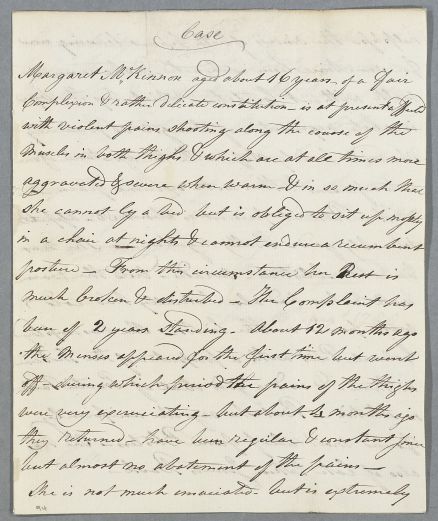 Case
Margaret McKinnon aged about 16 years of a fair
Complexion & rather delicate constitution is at present afflicted
with violent pains shooting along the course of the
Muscles in both thighs & which are at all times more
aggravated & severe when warm & in so much that
she cannot ly a bed but is obliged to sit up
in a chair at nights & cannot endure a recumbent
posture – From this circumstance her Rest is
much broken & disturbed – The Complaint has
been of 2 years Standing. About 12 months ago
the Menses appeared for the first time but went
off – during which period the pains of the thighs
were very excruciating – but about 4 months ago
they returned – have been regular & constant since
but almost no abatement of the pains –
She is not much emaciated – but is extremely